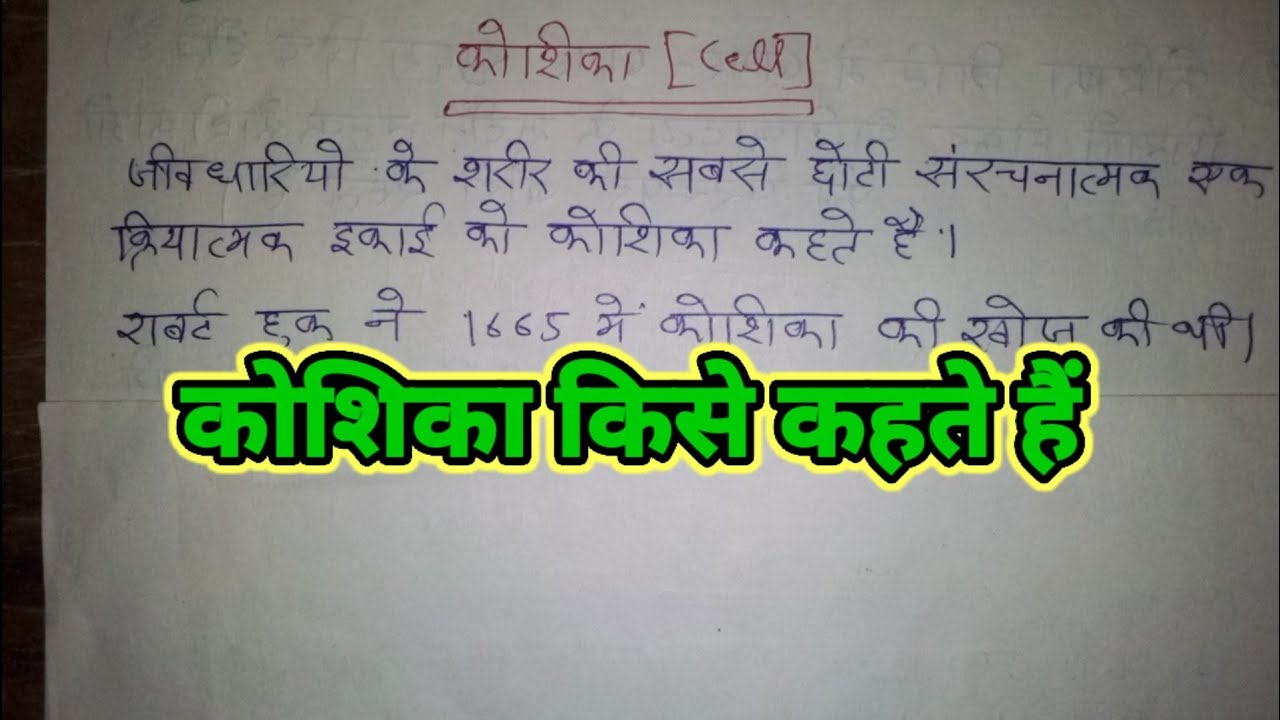 कोशिका [Cell]
जीवधारियो के शरीर की सबसे छोटी संरचनात्मक एक
क्रियात्मक इकाई को कोशिका कहते है।
राबर्ट हुक ने 1665 में कोशिका की खोज की थी।
कोशिका किसे कहते हैं